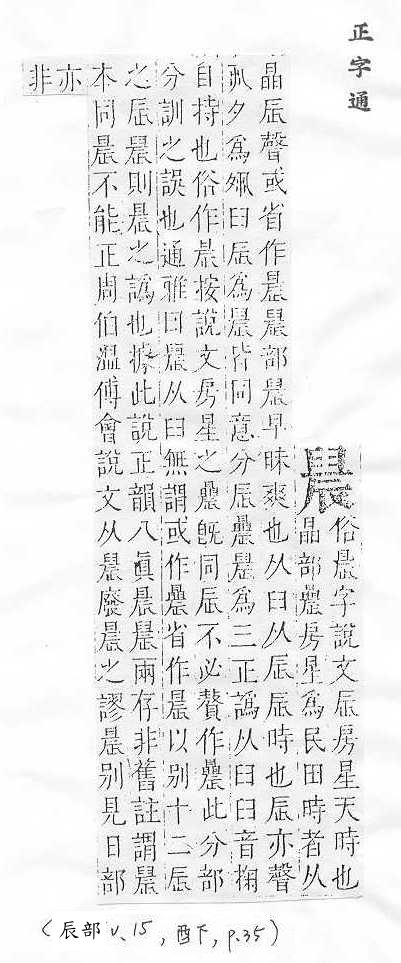 正字通
䢅
俗晨字說文辰房星天時也
晶部曟房星為民田時者从
晶辰聲或省作晨䢅部䢅早昧爽也从臼从辰辰時也辰亦聲
丮夕為𡖊臼辰為䢅皆同意分辰曟䢅為三正譌从臼臼音掬
自持也俗作晨按說文房星之曟旣同辰不必贅作曟此分部
分訓之誤也通雅曰䢅从臼無謂或作曟省作晨以别十二辰
之辰䢅則晨之譌也據此說正韻八眞晨䢅兩存非舊註謂䢅
本同晨不能正周伯溫傅會說文从䢅廢晨之謬晨别見日部
亦非
(辰部 v.15, 酉下, p.35)